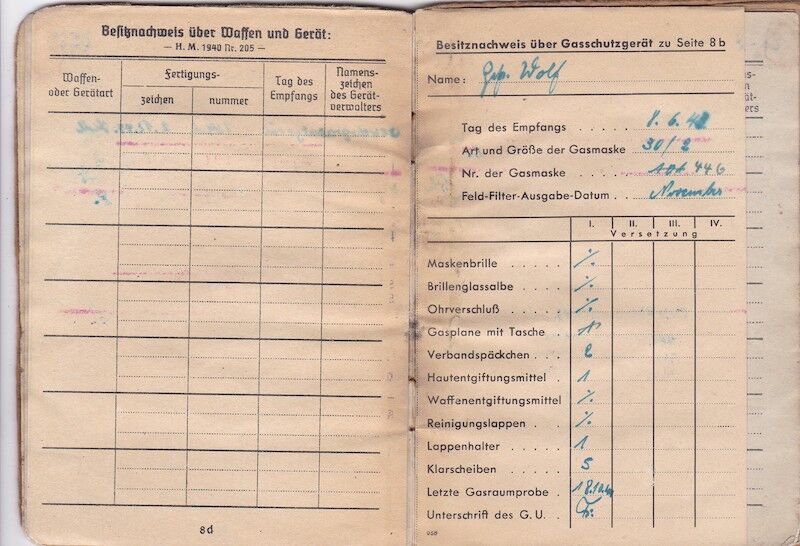 Besitznachweis über Waffen und Gerät:
— H. M. 1940 Nr. 205 —
Waffen- oder Gerätart
Fertigungs-
zeichen
nummer
Tag des Empfangs
Namenszeichen des Gerätverwalters
8d
Besitznachweis über Gasschutzgerät zu Seite 8b
Name: Wolf
Tag des Empfangs . . . . . 8. 6. 42
Art und Größe der Gasmaske . 30/2
Nr. der Gasmaske . . . . . 446
Feld-Filter-Ausgabe-Datum . . November
I. II. III. IV.
Versetzung
Maskenbrille . . . . . ∕.
Brillenglassalbe . . . . ∕.
Ohrverschluß . . . . ∕.
Gasplane mit Tasche . . 1
Verbandspäckchen . . . 2
Hautentgiftungsmittel . 1
Waffenentgiftungsmittel ∕.
Reinigungslappen . . . ∕.
Lappenhalter . . . . . 1
Klarscheiben . . . . . 5
Letzte Gasraumprobe .
Unterschrift des G. U. .